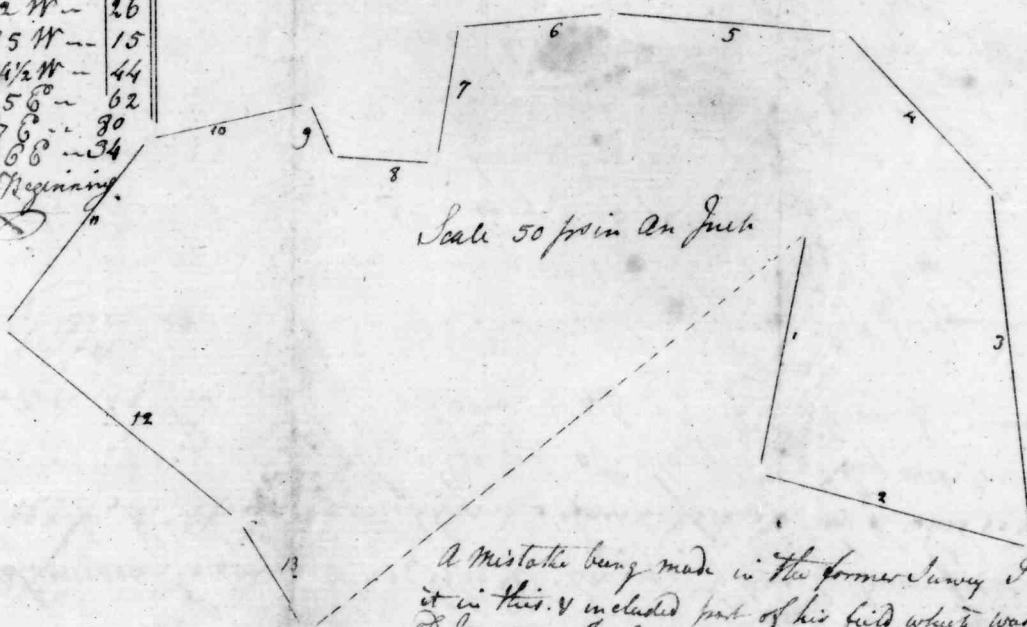 2 W - 26
5 W - 15
4½ W - 44
5 E - 62
7 E - 80
6 E - 34
Beginning
6
5
7
4
10
9
8
11
Scale 50 ps in An Inch
1
3
12
2
13
A Mistake being made in the former Survey I
it in this. & included part of his field which was